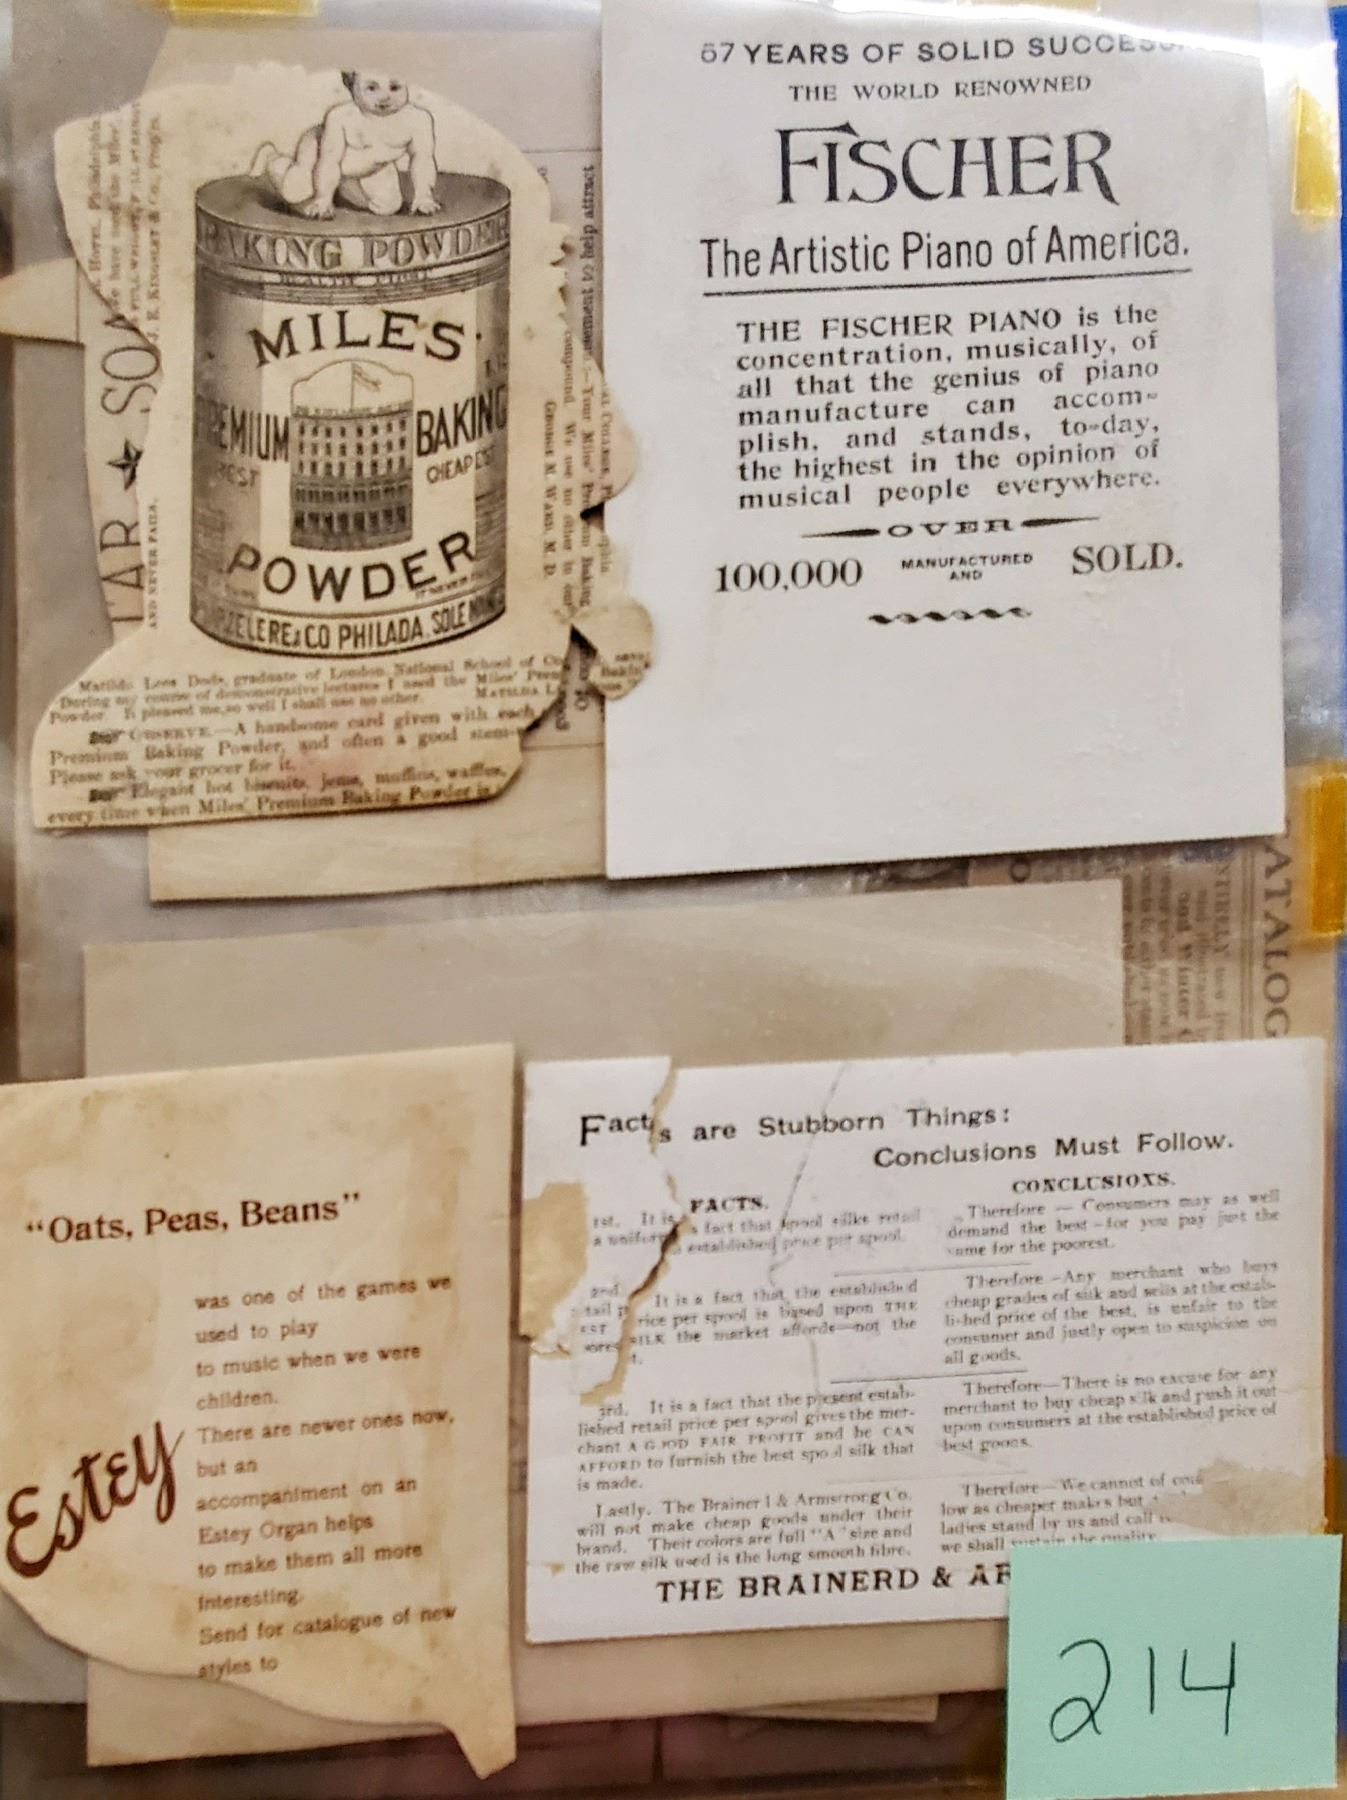 57 YEARS OF SOLID
THE WORLD RENOWNED
FISCHER
The Artistic Piano of America.
THE FISCHER PIANO is the
concentration, musically, of
all that the genius of piano
manufacture can accom-
plish, and stands, to-day,
the highest in the opinion of
musical people everywhere.
OVER
100,000 MANUFACTURED AND SOLD.
BAKING POWDER
MILES'
PREMIUM BAKING
BEST CHEAPEST
POWDER
& CO PHILADA. SOLE
TAR ★ SOA
AND NEVER FAILS.
J. E. KINGSLEY & CO., Prop'rs.
Hotel, Philadelphia
We have used the Miles'
help attract
compound. We use no other in our
GEORGE M. WARD, M. D.
Matilda Lees Dods, graduate of London National School of
During my course of demonstrative lectures I used the Miles'
Powder. It pleased me so well I shall use no other.
OBSERVE.—A handsome card given with each
Premium Baking Powder, and often a good
Please ask your grocer for it.
Elegant hot biscuits, jems, muffins, waffles,
every time when Miles' Premium Baking Powder is
CATALOG
"Oats, Peas, Beans"
was one of the games we
used to play
to music when we were
children.
There are newer ones now,
but an
accompaniment on an
Estey Organ helps
to make them all more
interesting.
Send for catalogue of new
styles to
Estey
Facts are Stubborn Things:
Conclusions Must Follow.
FACTS.
1st. It is a fact that spool silks retail
a uniform established price per spool.
2nd. It is a fact that the established
price per spool is based upon THE
SILK the market affords—not the
3rd. It is a fact that the present estab-
lished retail price per spool gives the mer-
chant A GOOD FAIR PROFIT and he CAN
AFFORD to furnish the best spool silk that
is made.
Lastly. The Brainerd & Armstrong Co.
will not make cheap goods under their
brand. Their colors are full "A" size and
the raw silk used is the long smooth fibre.
CONCLUSIONS.
Therefore — Consumers may as well
demand the best—for you pay just the
same for the poorest.
Therefore—Any merchant who buys
cheap grades of silk and sells at the estab-
lished price of the best, is unfair to the
consumer and justly open to suspicion on
all goods.
Therefore—There is no excuse for any
merchant to buy cheap silk and push it out
upon consumers at the established price of
best goods.
Therefore—We cannot of
low as cheaper makes but
ladies stand by us and call
we shall sustain the quality
THE BRAINERD & AR
214